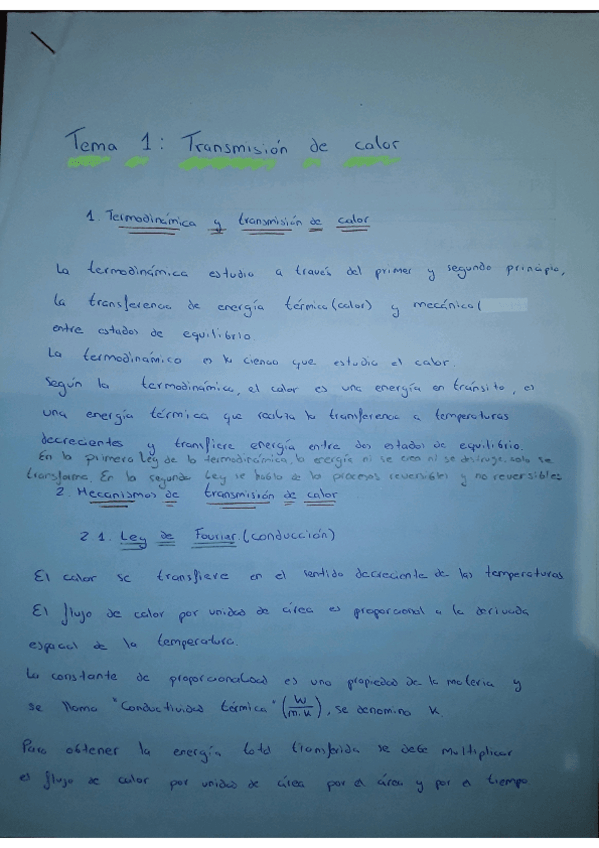 Tema 1: Transmisión de calor
1. Termodinámica y transmisión de calor
La termodinámica estudia a través del primer y segundo principio,
la transferencia de energía térmica (calor) y mecánica (
entre estados de equilibrio.
La termodinámica es la ciencia que estudia el calor.
Según la termodinámica, el calor es una energía en tránsito, es
una energía térmica que realiza la transferencia a temperaturas
decrecientes y transfiere energía entre dos estados de equilibrio.
En la primera Ley de la termodinámica, la energía ni se crea ni se destruye, solo se
transforma. En la segunda Ley se habla de los procesos reversibles y no reversibles
2. Mecanismos de transmisión de calor
2.1. Ley de Fourier (conducción)
El calor se transfiere en el sentido decreciente de las temperaturas
El flujo de calor por unidad de área es proporcional a la derivada
espacial de la temperatura.
La constante de proporcionalidad es una propiedad de la materia y
se llama "Conductividad térmica" (W/m.K), se denomina K.
Para obtener la energía total transferida se debe multiplicar
el flujo de calor por unidad de área por el área y por el tiempo